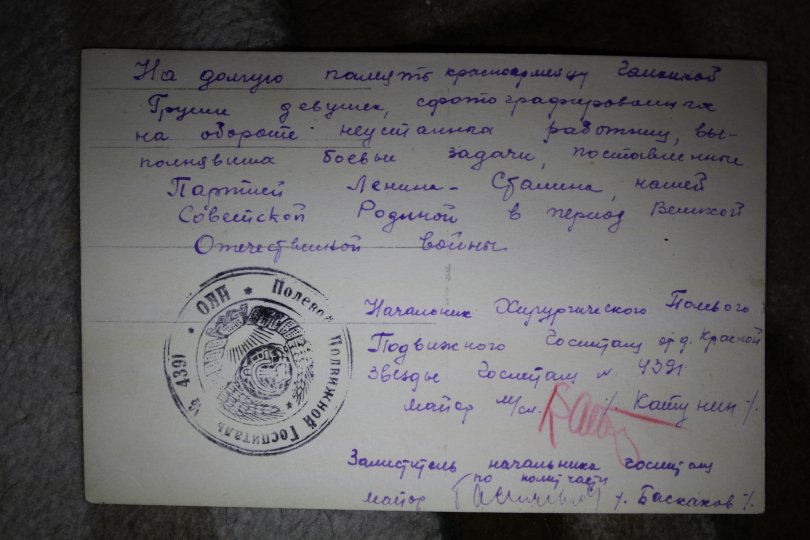 На долгую память красноармейцу Галкиной
Группы девушек, сфотографировавшихся
на обороте неустанных работниц, вы-
полнявших боевые задачи, поставленные
Партией Ленина-Сталина, нашей
Советской Родиной в период Великой
Отечественной войны
Начальник Хирургического Полевого
Подвижного Госпиталя орд. Красной
Звезды Госпиталь № 4391
майор м/сл. /Катунин/.
Заместитель начальника госпиталя
по политчасти
майор /. Баскаков /.
НКО * Полевой Подвижной Госпиталь № 4391 *